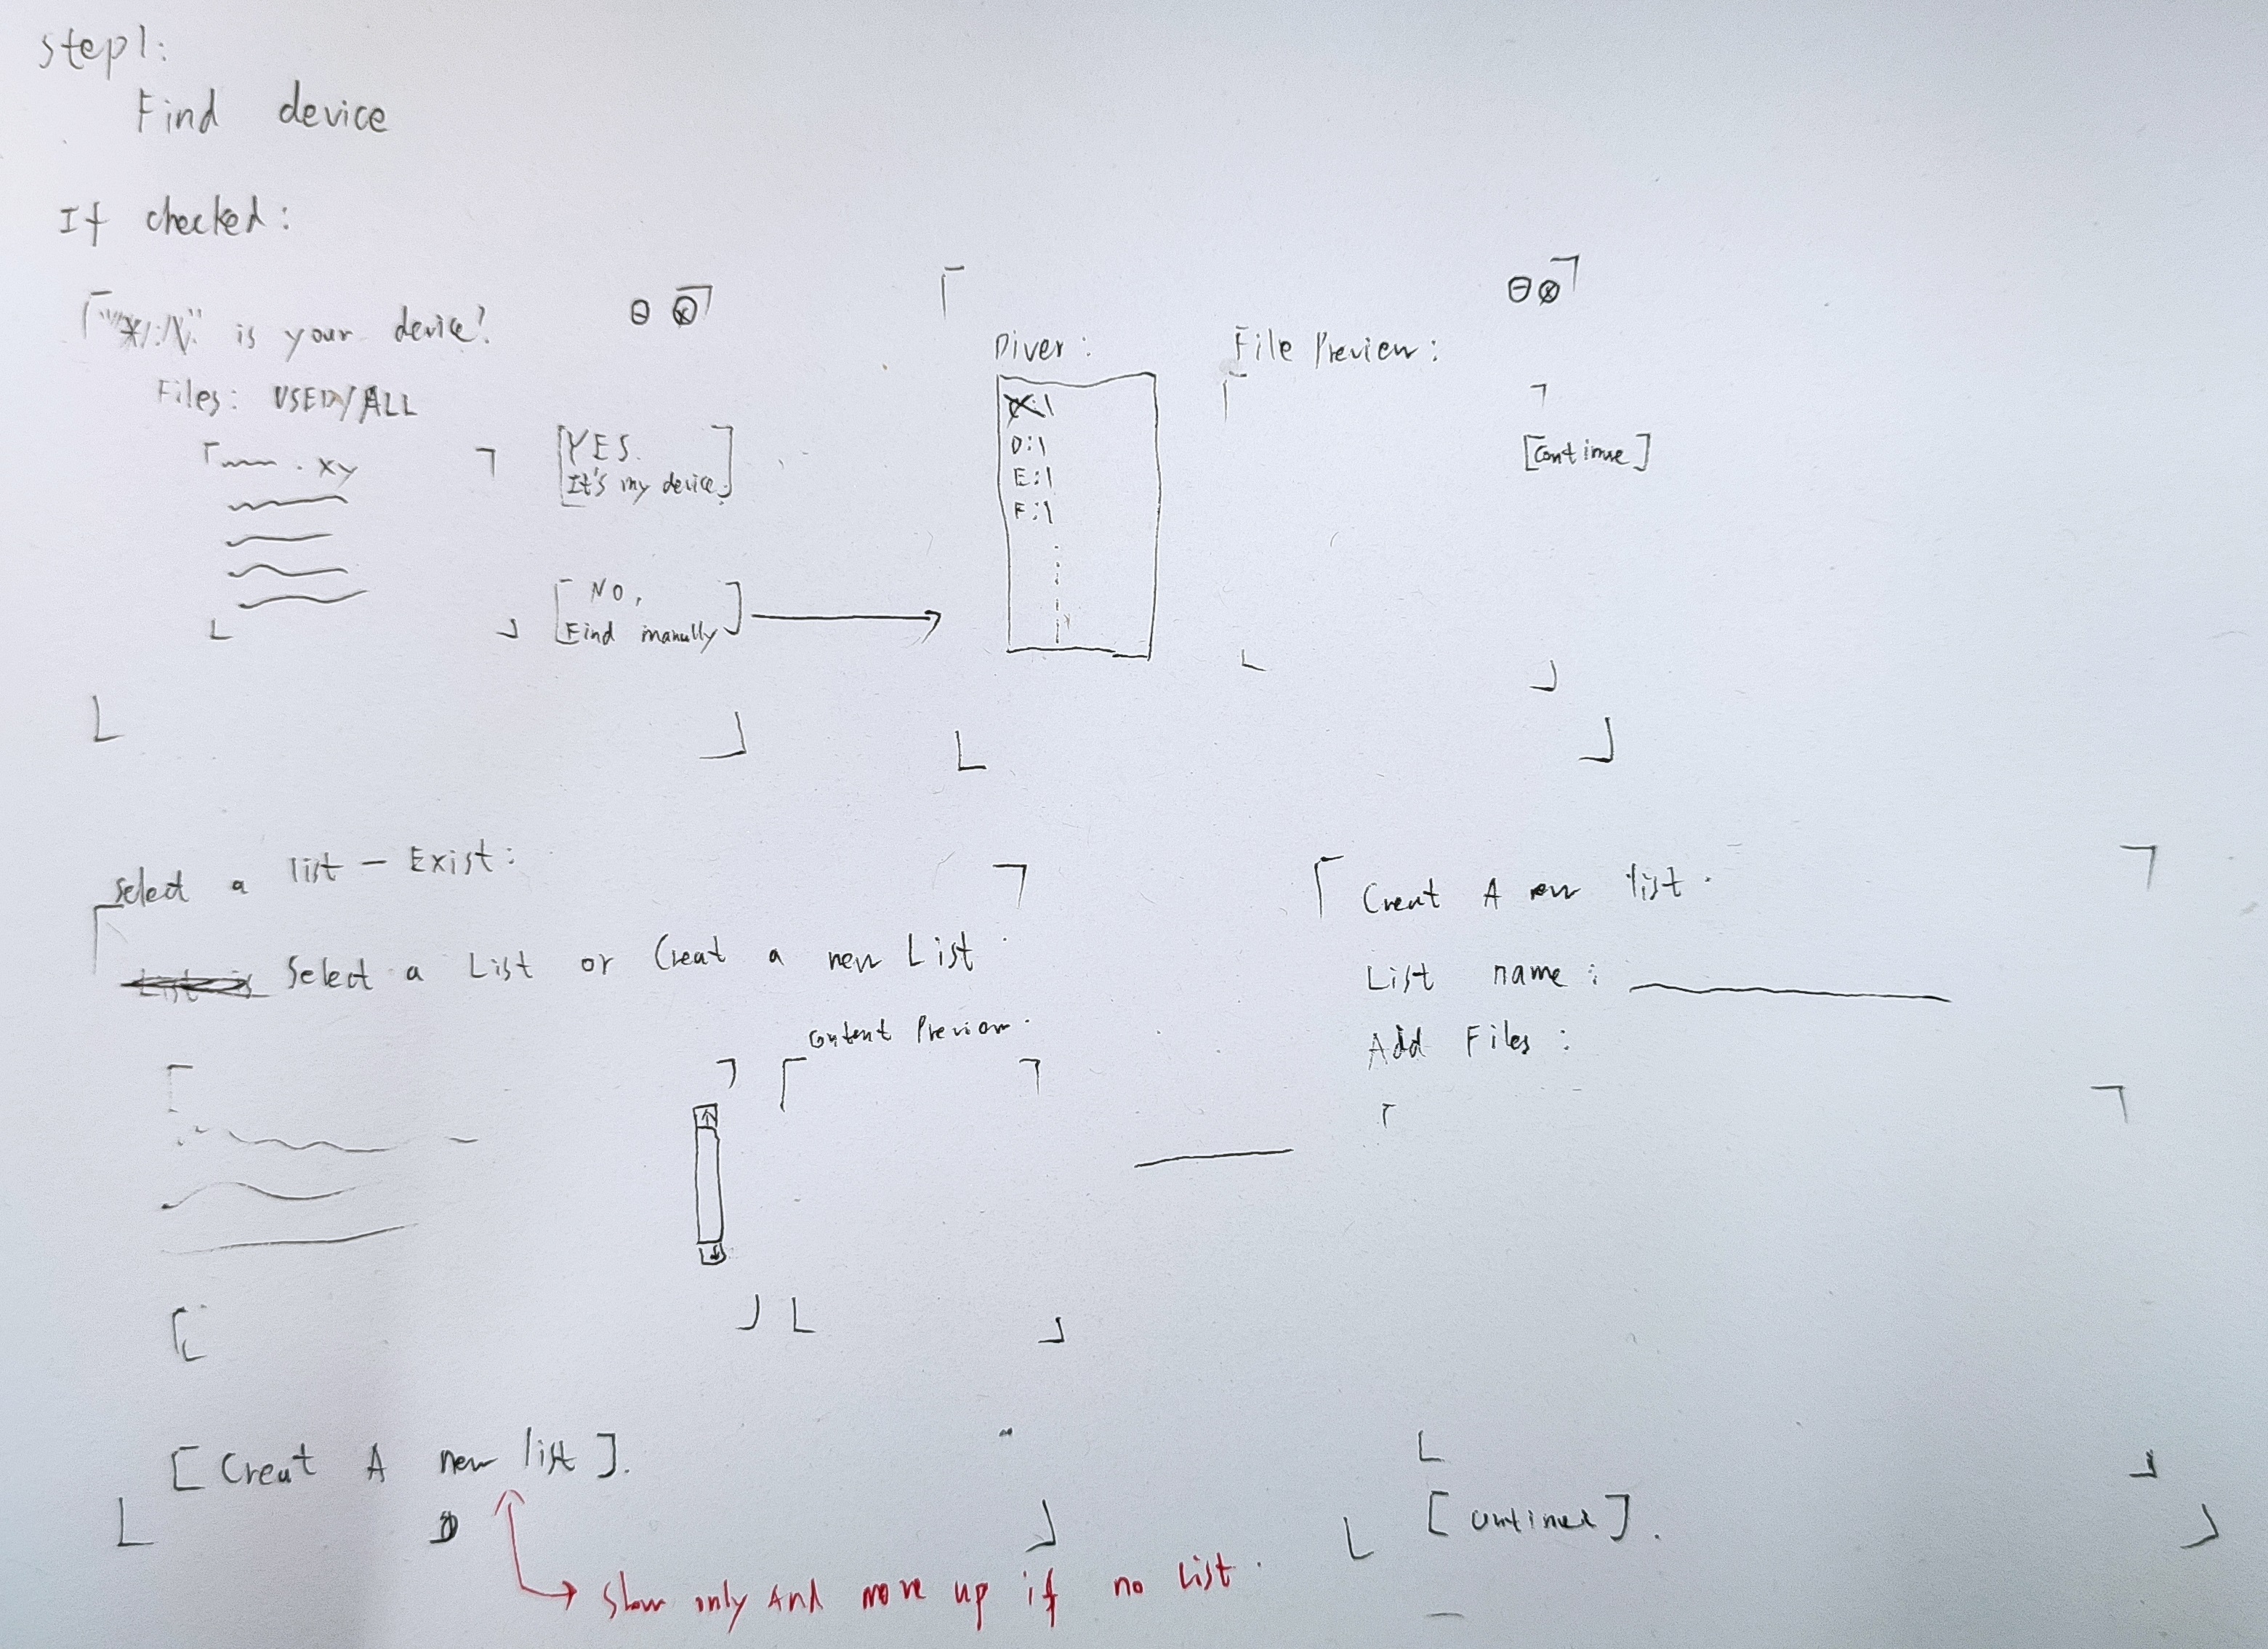 step1:
Find device
If checked:
is your device?
Files: USED/ALL
.xy
[YES.
It's my device.]
[NO,
Find manully]
Diver:
D:\
E:\
F:\
File Preview:
[Continue]
Select a list - Exist:
Select a List or Creat a new List.
Content Preview.
[Creat A new list].
Show only And move up if no List.
Creat A new list.
List name:
Add Files:
[Continue].